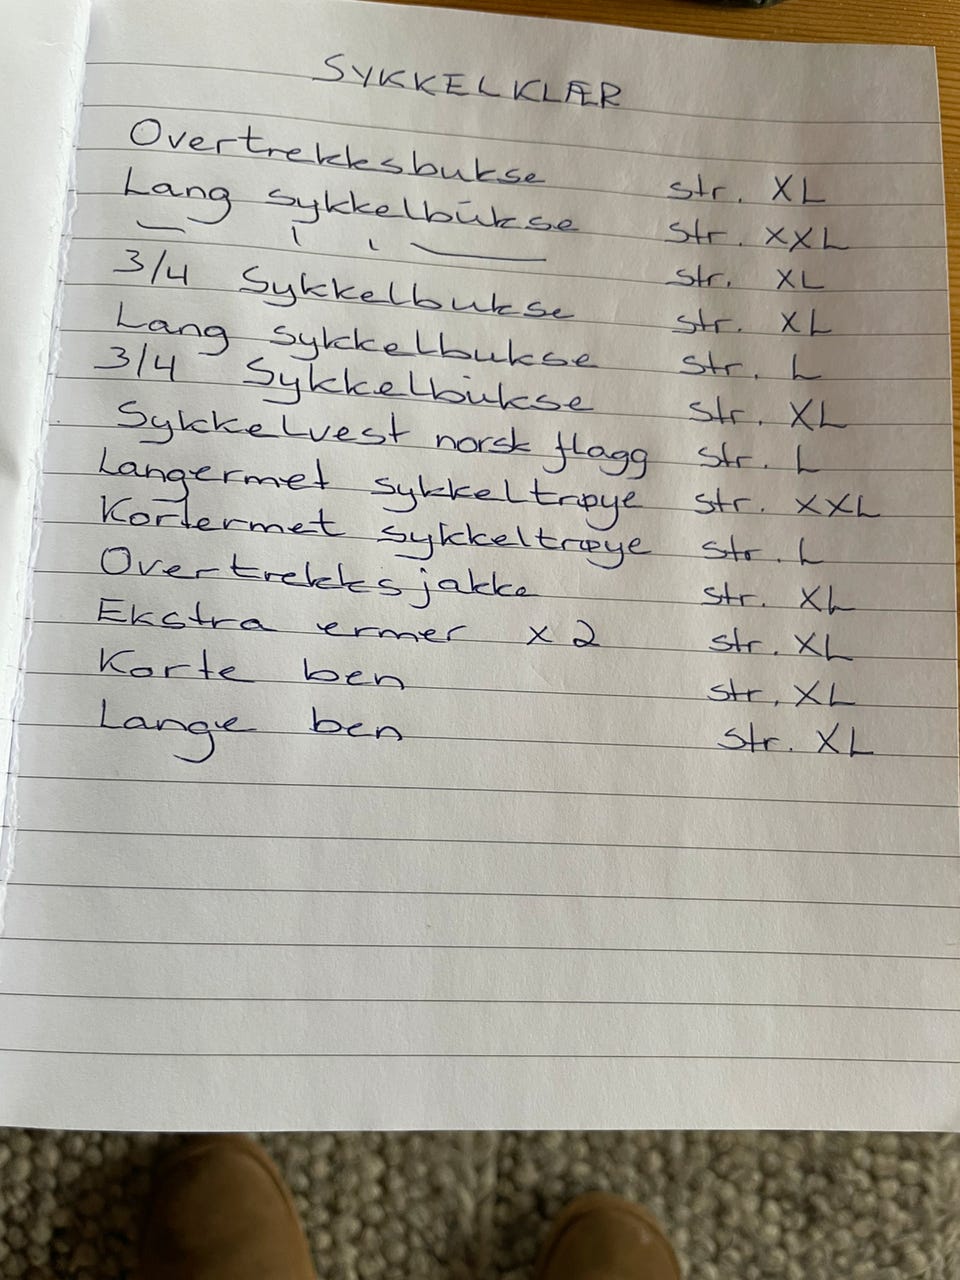 SYKKELKLÆR
Overtrekksbukse str. XL
Lang sykkelbukse str. XXL
— ı ı — str. XL
3/4 Sykkelbukse str. XL
Lang sykkelbukse str. L
3/4 Sykkelbukse str. XL
Sykkelvest norsk flagg str. L
Langermet sykkeltrøye str. XXL
Kortermet sykkeltrøye str. L
Overtrekksjakke str. XL
Ekstra ermer x 2 str. XL
Korte ben str. XL
Lange ben str. XL